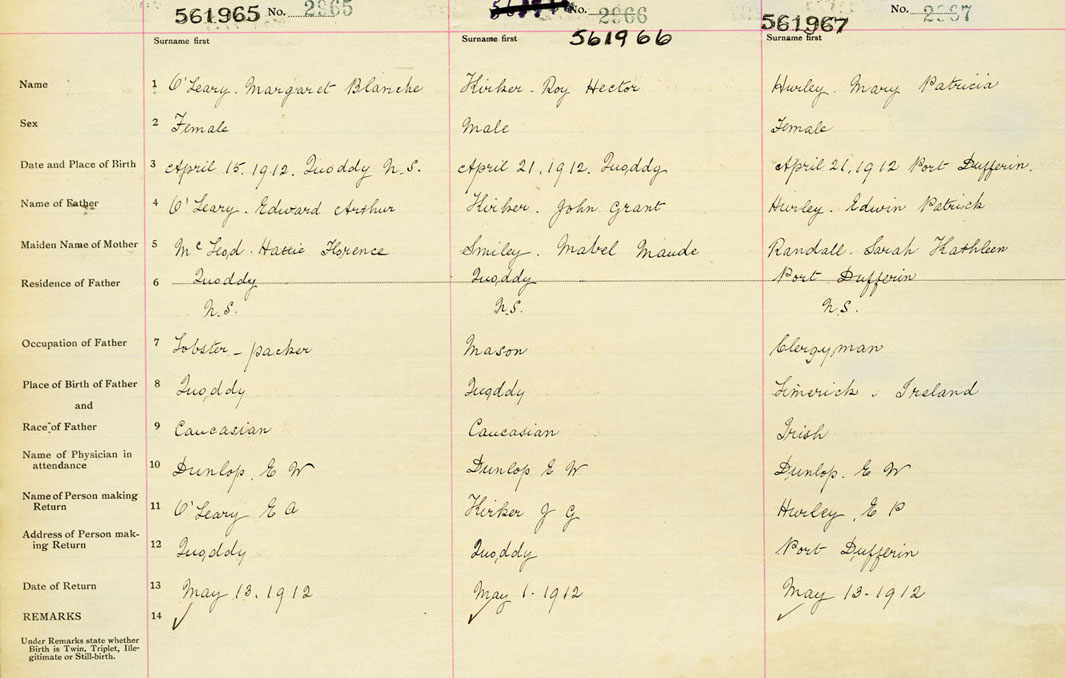 561965 No. 2965 No. 2966 561967 No. 2967
Surname first Surname first 561966 Surname first
Name 1 O'Leary. Margaret Blanche Kirker. Roy Hector Hurley. Mary Patricia
Sex 2 Female Male Female
Date and Place of Birth 3 April 15. 1912. Quoddy N.S. April 21, 1912. Quoddy April 21, 1912 Port Dufferin.
Name of Father 4 O'Leary. Edward Arthur Kirker. John Grant Hurley. Edwin Patrick
Maiden Name of Mother 5 Mc Leod. Hattie Florence Smiley. Mabel Maude Randall. Sarah Kathleen
Residence of Father 6 Quoddy Quoddy Port Dufferin
N.S. N.S. N.S.
Occupation of Father 7 Lobster-packer Mason Clergyman
Place of Birth of Father 8 Quoddy Quoddy Limerick. Ireland
and
Race of Father 9 Caucasian Caucasian Irish
Name of Physician in
attendance 10 Dunlop. E W Dunlop E W Dunlop. E W
Name of Person making
Return 11 O'Leary E A Kirker J G Hurley. E P
Address of Person mak-
ing Return 12 Quoddy Quoddy Port Dufferin
Date of Return 13 May 13. 1912 May 1. 1912 May 13-1912
REMARKS 14
Under Remarks state whether
Birth is Twin, Triplet, Ille-
gitimate or Still-birth.